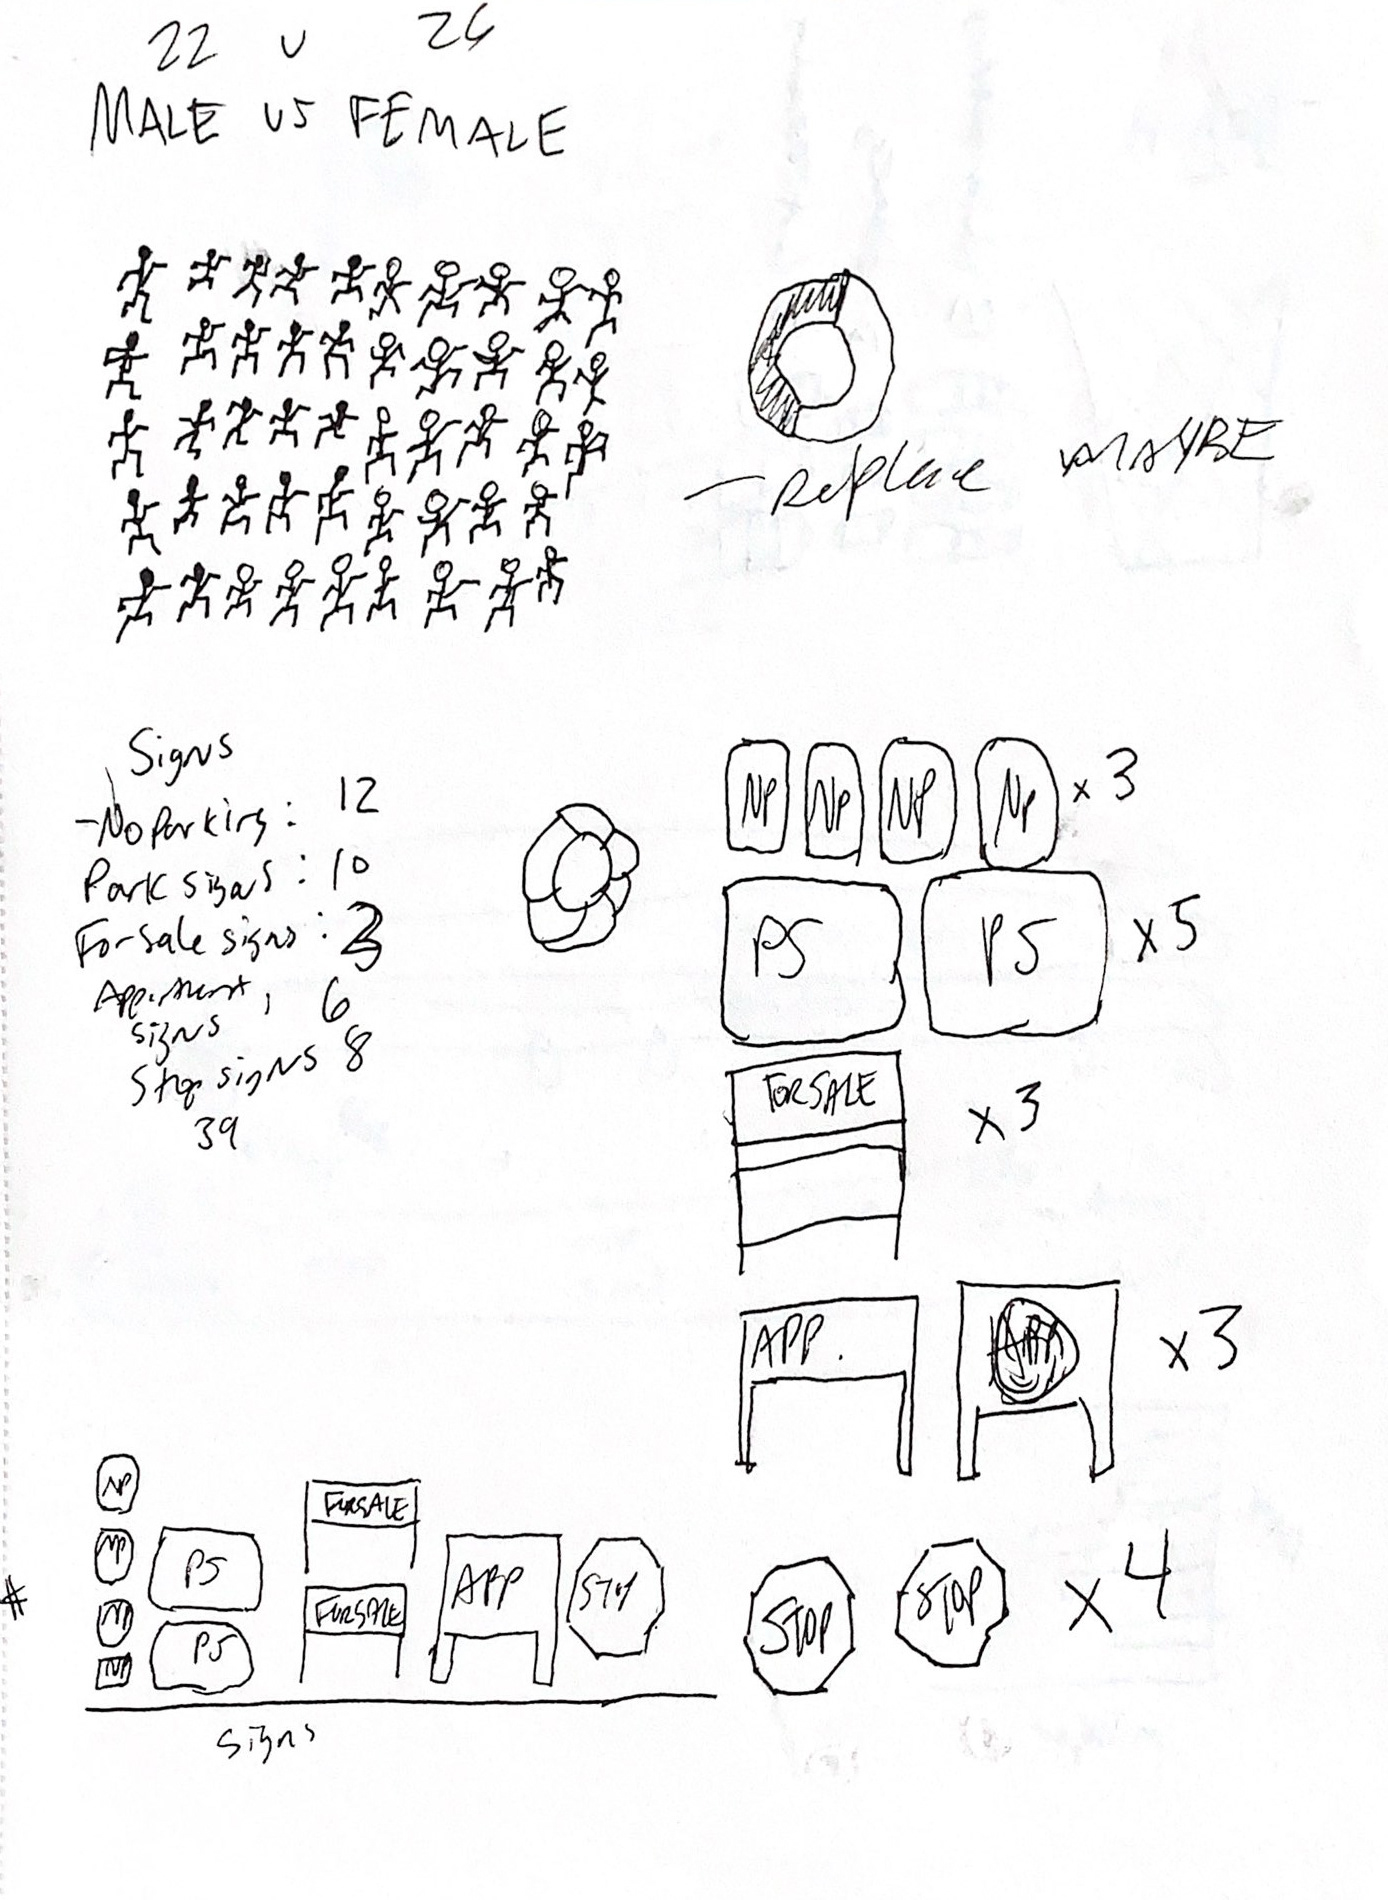 22 v 26
MALE vs FEMALE
- replace MAYBE
Signs
- No parking: 12
Park signs: 10
For sale signs: 3
signs 6
Stop signs 8
39
NP NP NP NP x 3
PS PS x5
FOR SALE x3
APP. x3
STOP STOP x4
NP
NP
NP
NP
PS
PS
FORSALE
FORSALE
APP
STOP
#
signs